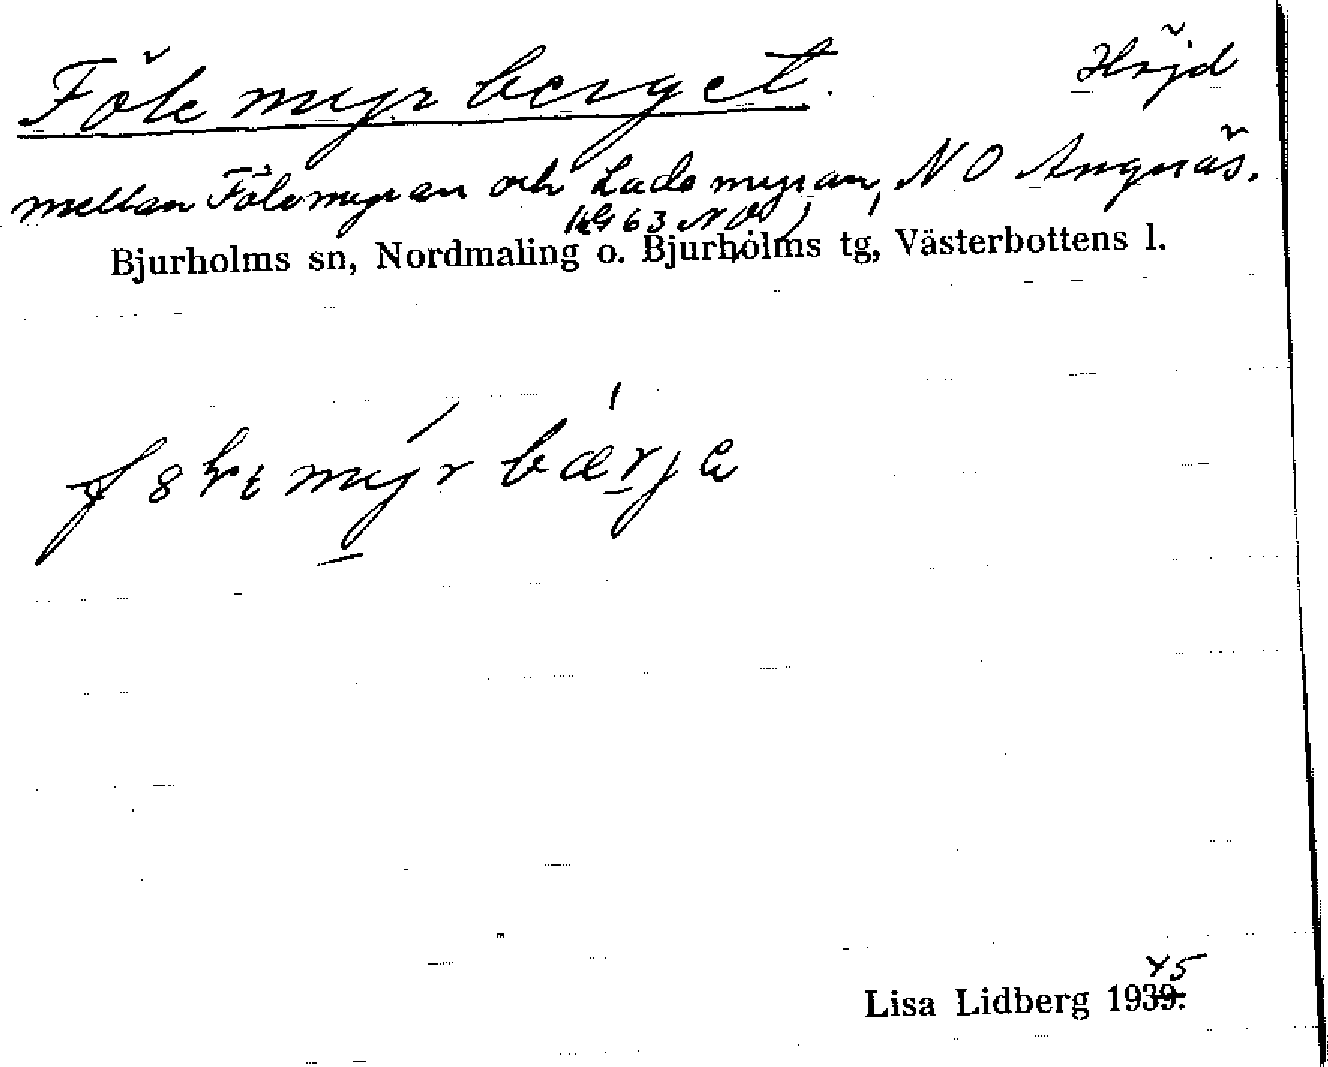 Fölemyrberget. Höjd
mellan Fölemyran och Lademyran, NO Angnäs.
63 NO
Bjurholms sn, Nordmaling o. Bjurholms tg, Västerbottens l.
Lisa Lidberg 1939. 45